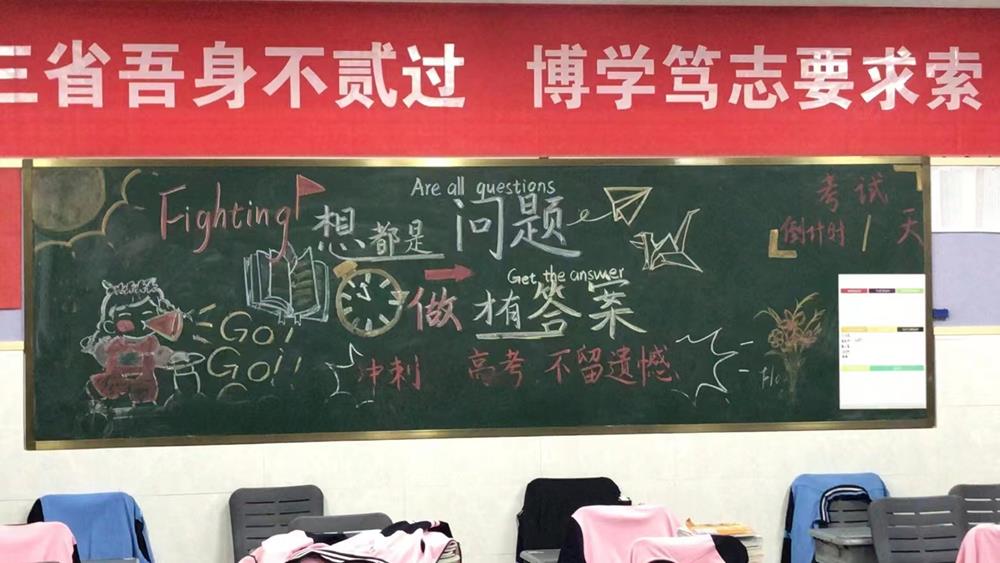 三省吾身不贰过 博学笃志要求索
Fighting
Are all questions
想都是问题
Get the answer
做才有答案
Go!
Go!!
冲刺 高考 不留遗憾
考试
倒计时 1 天